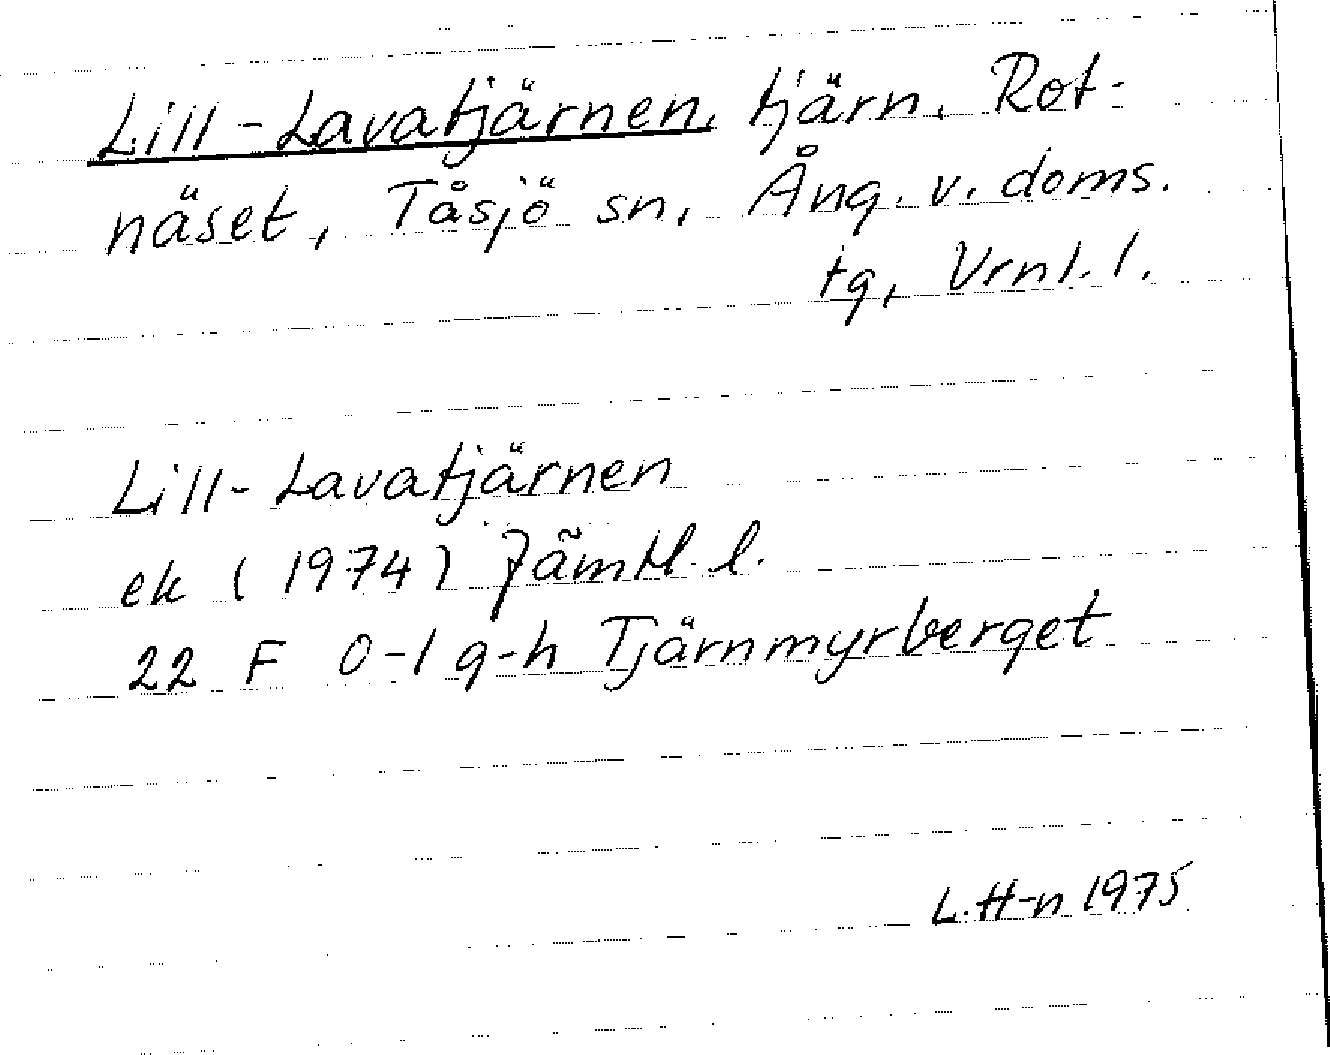 Lill-Lavatjärnen, tjärn, Rot-
näset, Tåsjö sn, Ång. v. doms.
tg, Vrnl. l.
Lill-Lavatjärnen
ek (1974) Jämtl. l.
22 F 0-1 g-h Tjärnmyrberget
L. H-n 1975